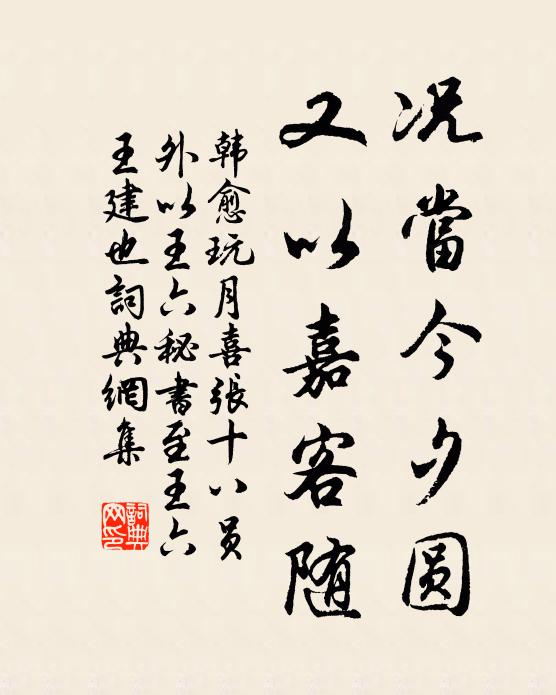 况當今夕圆
又以嘉客随
韩愈玩月喜張十八员
外以王六秘書至王六
王建也詞典網集
詞典网印